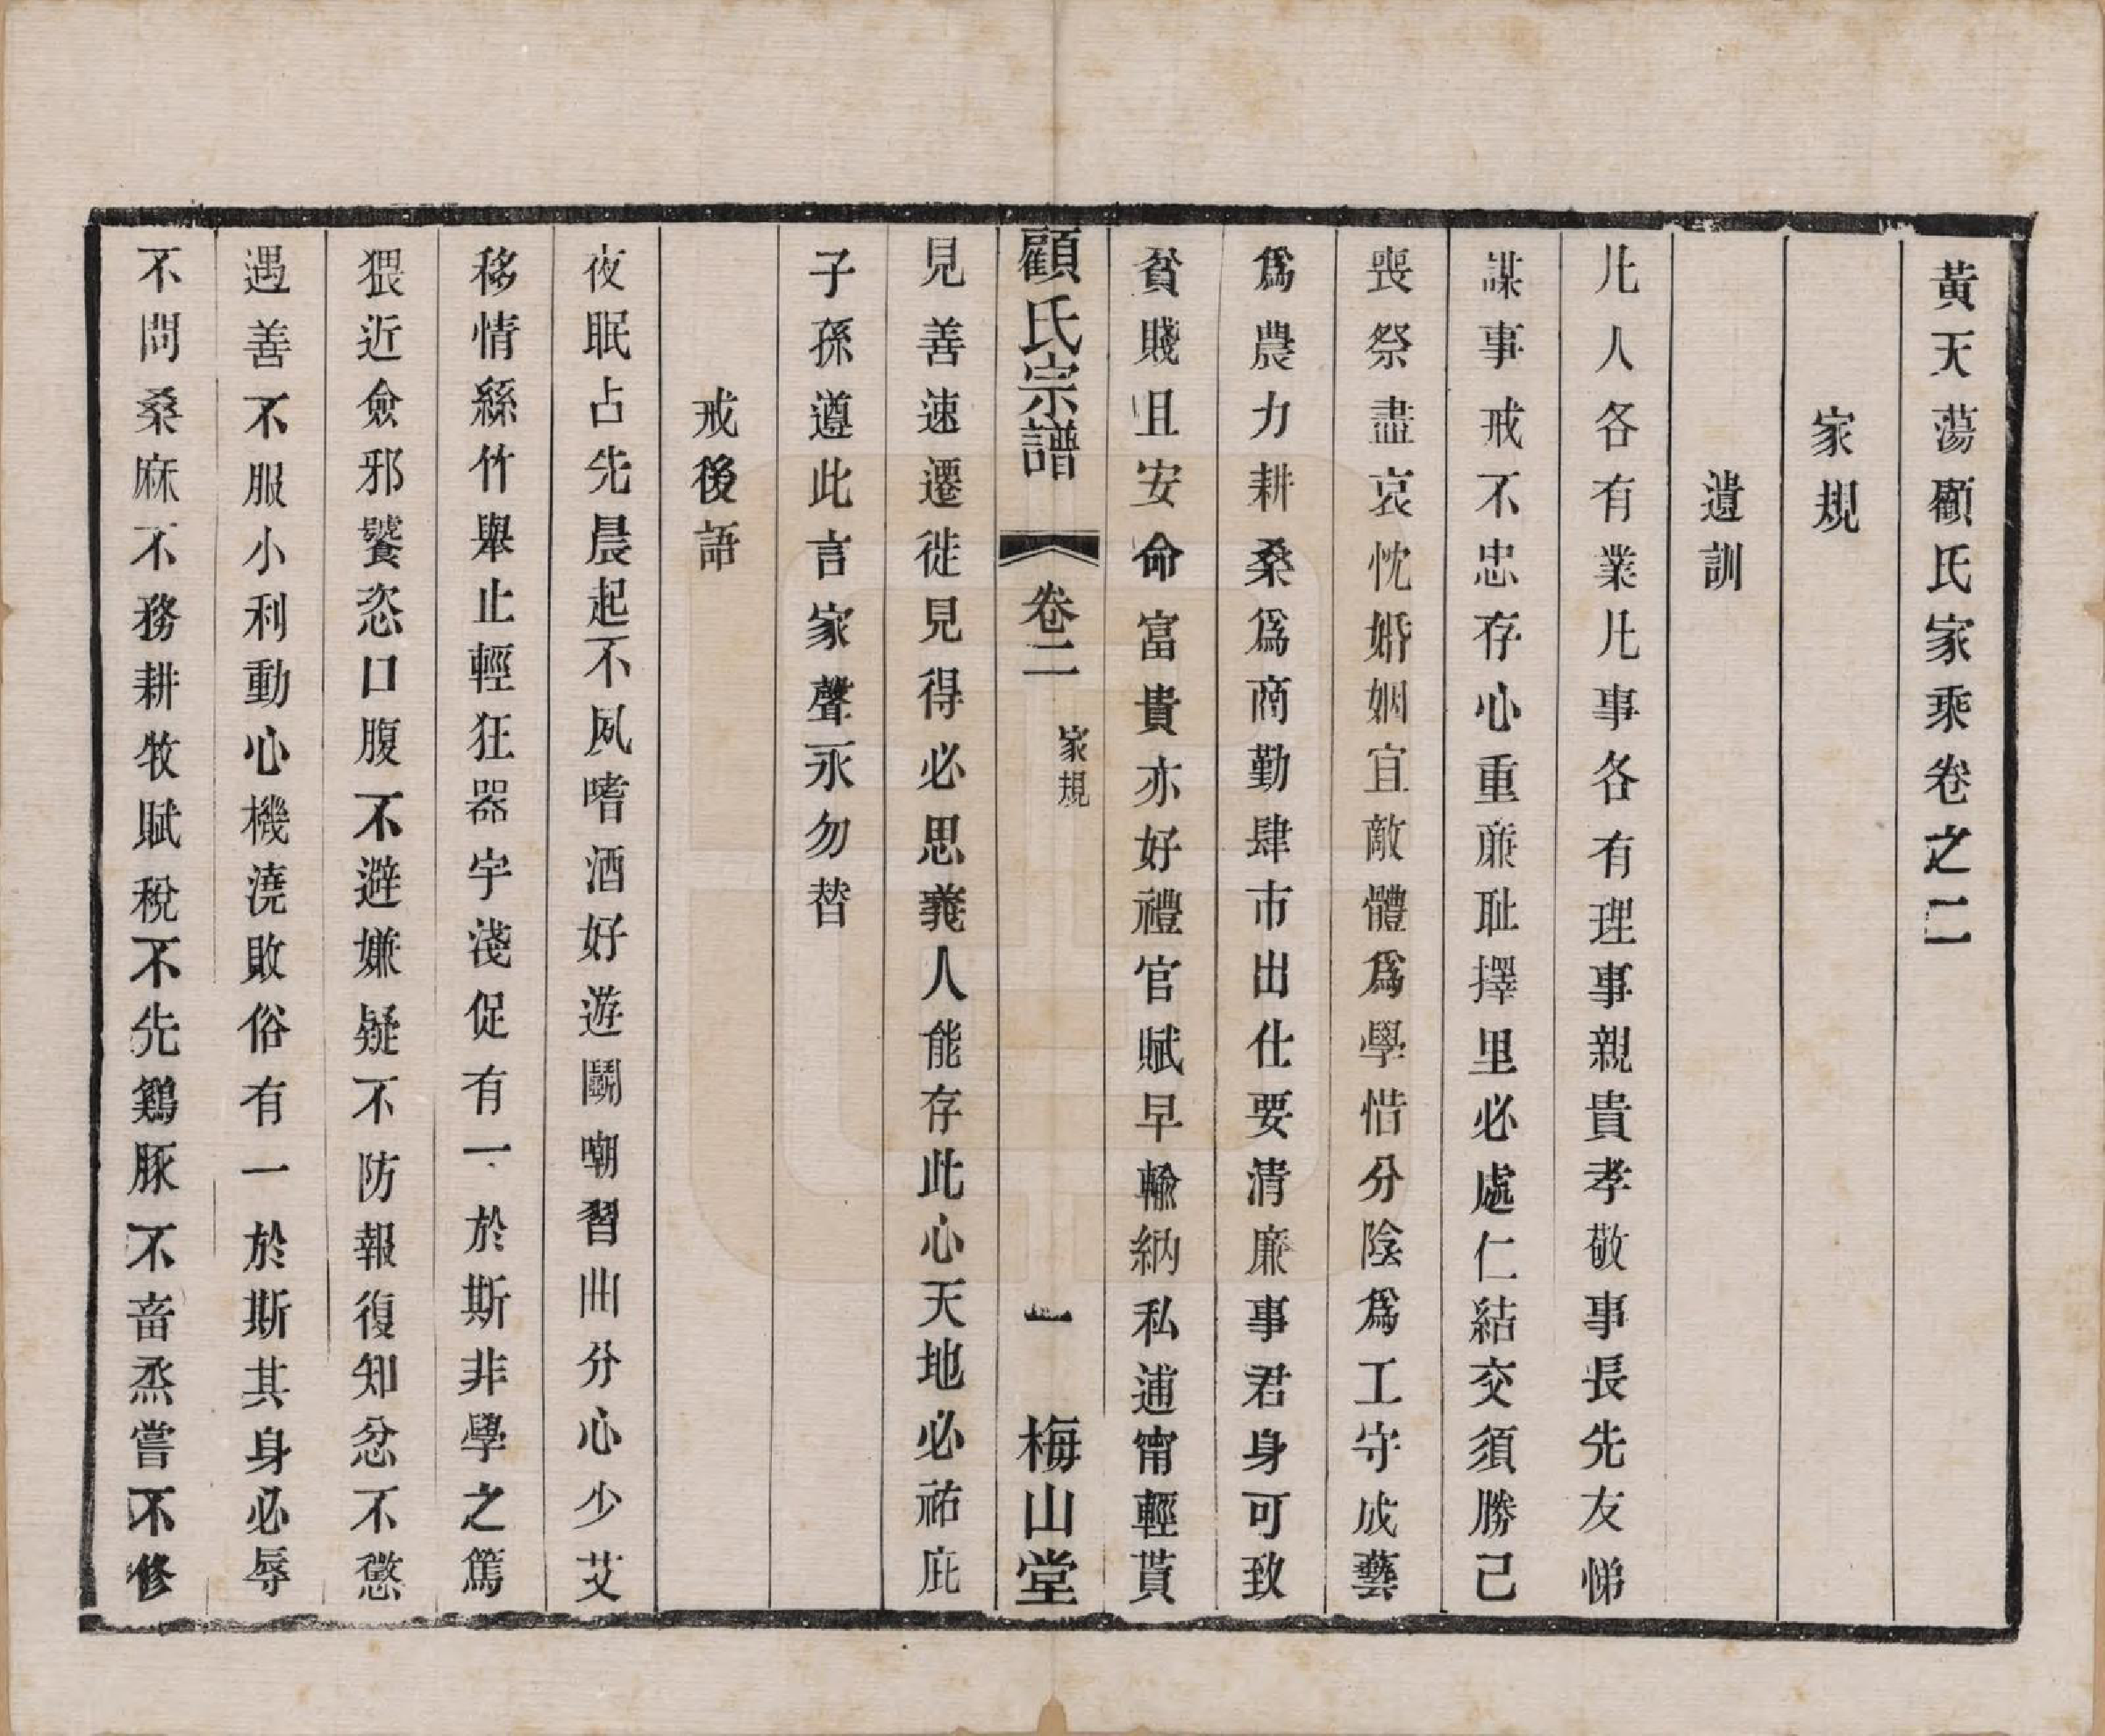 黃天蕩顧氏家乘卷之二
家規
遺訓
凡人各有業凡事各有理事親貴孝敬事長先友悌
謀事戒不忠存心重廉耻擇里必處仁結交須勝己
喪祭盡哀忱婚姻宜敵體爲學惜分陰爲工守成藝
爲農力耕桑爲商勤肆市出仕要清廉事君身可致
貧賤且安命富貴亦好禮官賦早輸納私逋甯輕貰
顧氏宗譜 卷二 家規 一 梅山堂
見善速遷徙見得必思義人能存此心天地必祐庇
子孫遵此言家聲永勿替
戒後語
夜眠占先晨起不夙嗜酒好遊鬭嘲習曲分心少艾
移情絲竹舉止輕狂器宇淺促有一於斯非學之篤
猥近僉邪饕恣口腹不避嫌疑不防報復知忿不懲
遇善不服小利動心機澆敗俗有一於斯其身必辱
不問桑麻不務耕牧賦稅不先鷄豚不畜烝嘗不修